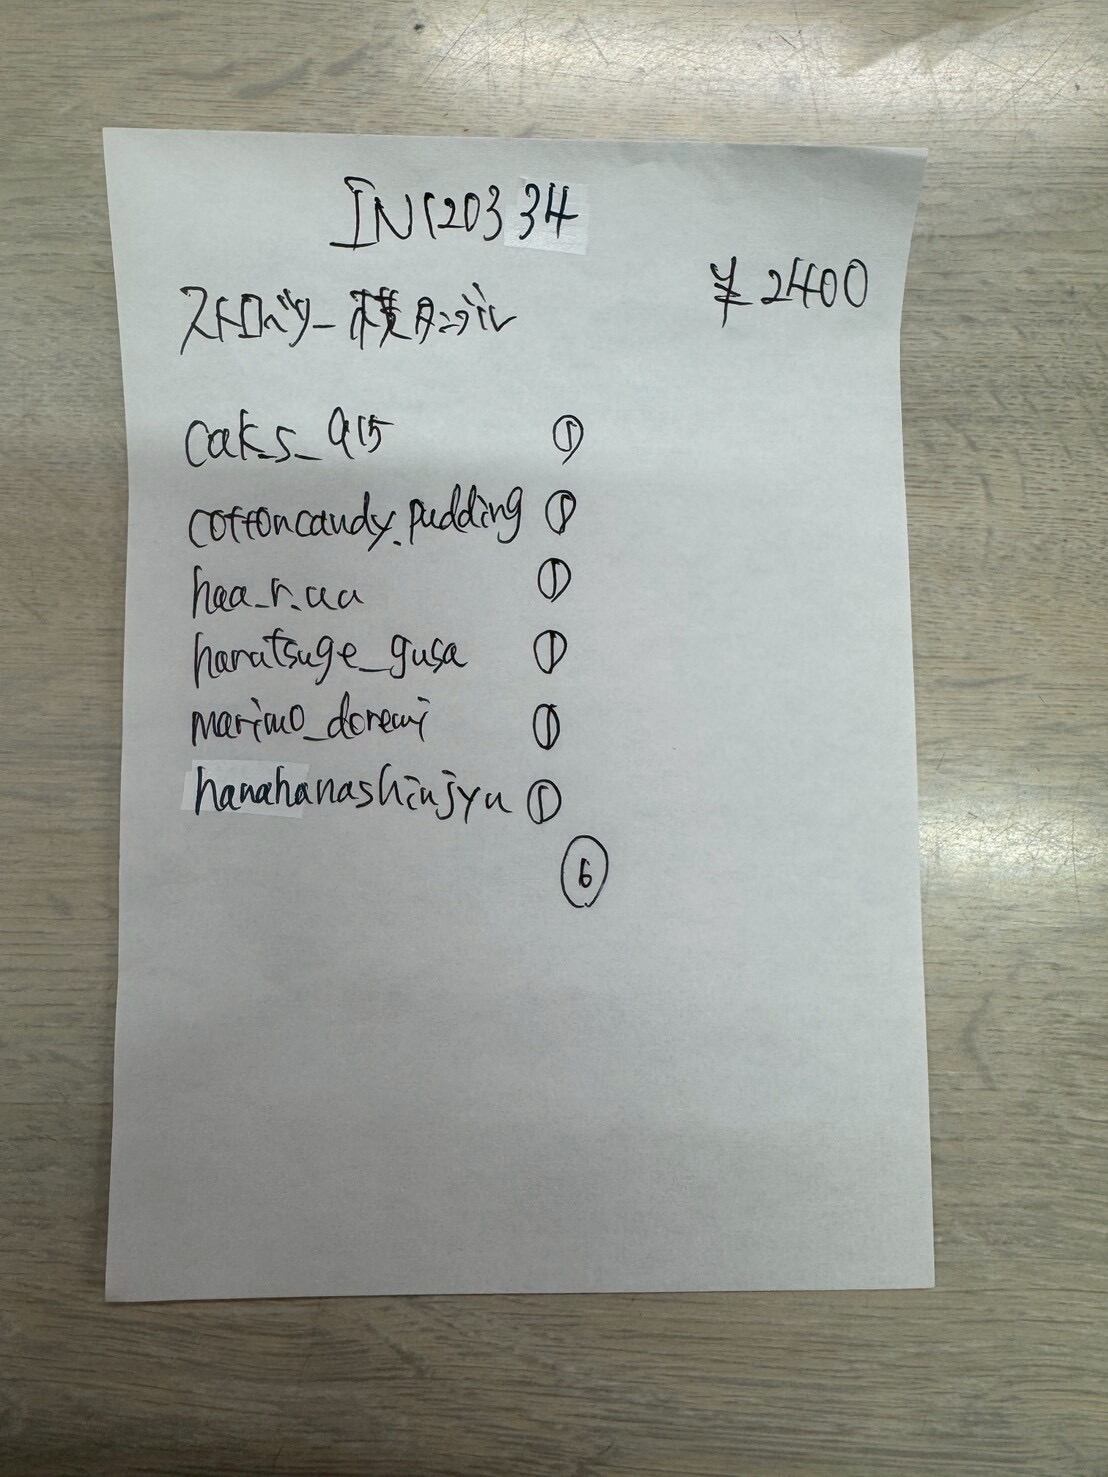 IN120334
¥2400
ストロベリー横タンブル
caks_915 ①
cottoncandy.pudding ①
haa_r.uu ①
haratsuge_gusa ①
marimo_doremi ①
hanahanashinjyu ①
⑥